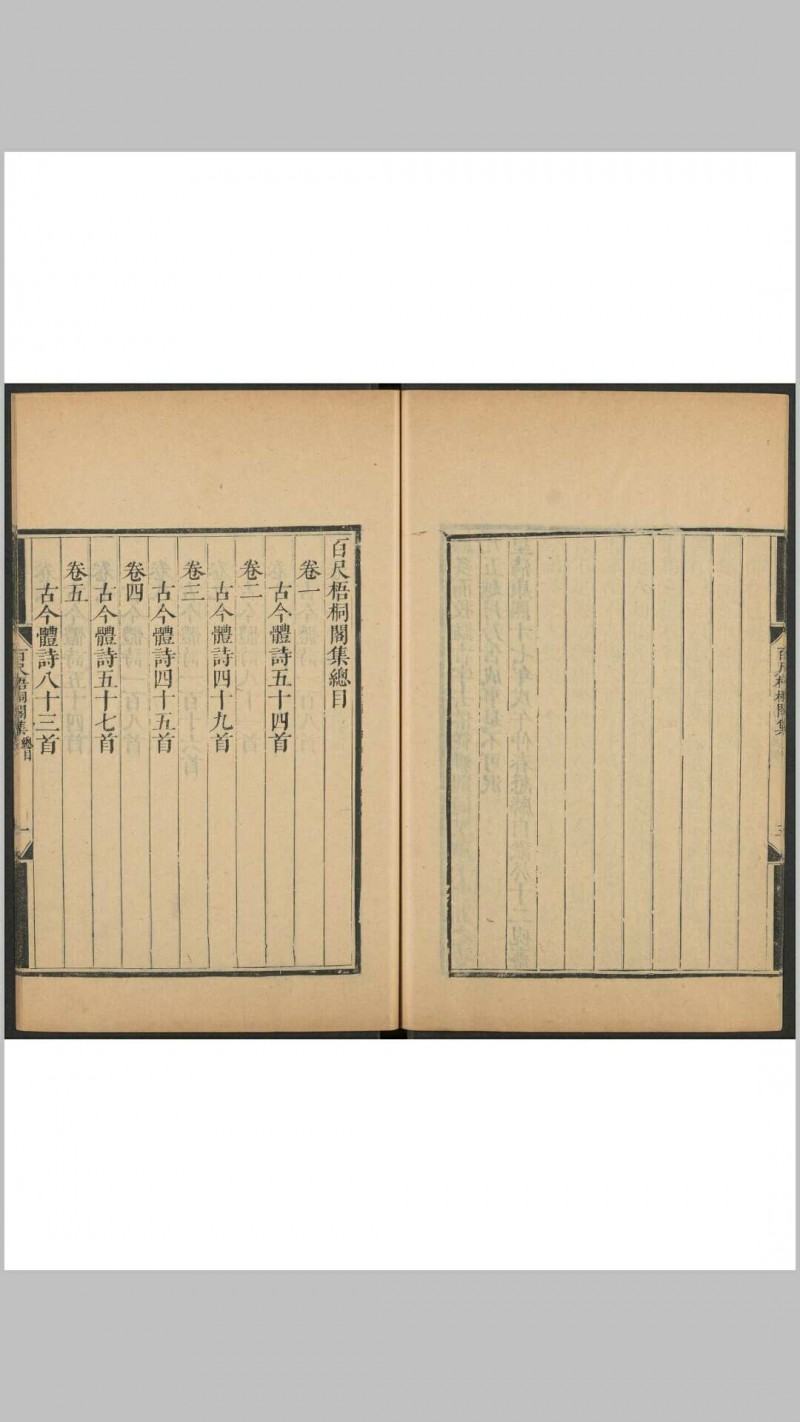 百尺梧桐閣集
百尺梧桐閣集總目
卷一
古今體詩五十四首
卷二
古今體詩四十九首
卷三
古今體詩四十五首
卷四
古今體詩五十七首
卷五
古今體詩八十三首
百尺梧桐閣集 總目
一